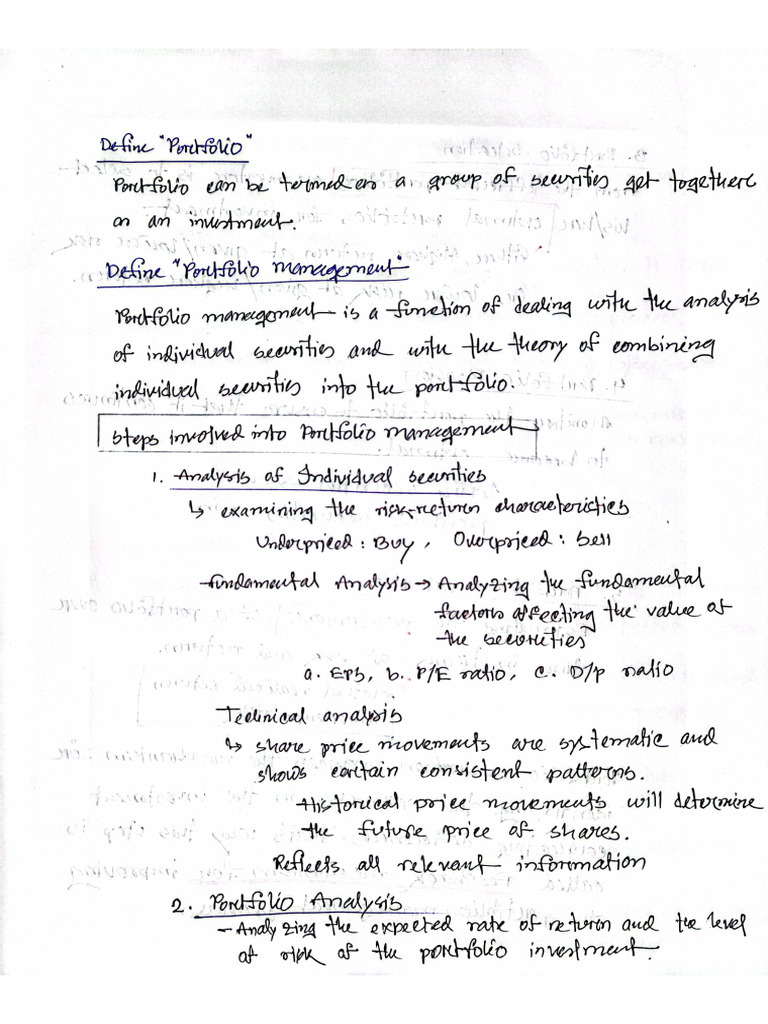 Define "Portfolio"
Portfolio can be termed as a group of securities get together
as an investment.
Define "Portfolio management"
Portfolio management is a function of dealing with the analysis
of individual securities and with the theory of combining
individual securities into the portfolio.
Steps involved into Portfolio management
1. Analysis of Individual securities
↳ examining the risk-return characteristics
Underpriced : Buy, Overpriced : sell
Fundamental Analysis → Analyzing the fundamental
factors affecting the value of
the securities
a. EPS, b. P/E ratio, c. D/p ratio
Technical analysis
↳ share price movements are systematic and
shows certain consistent patterns.
Historical price movements will determine
the future price of shares.
Reflects all relevant information
2. Portfolio Analysis
- Analyzing the expected rate of return and the level
of risk of the portfolio investment.